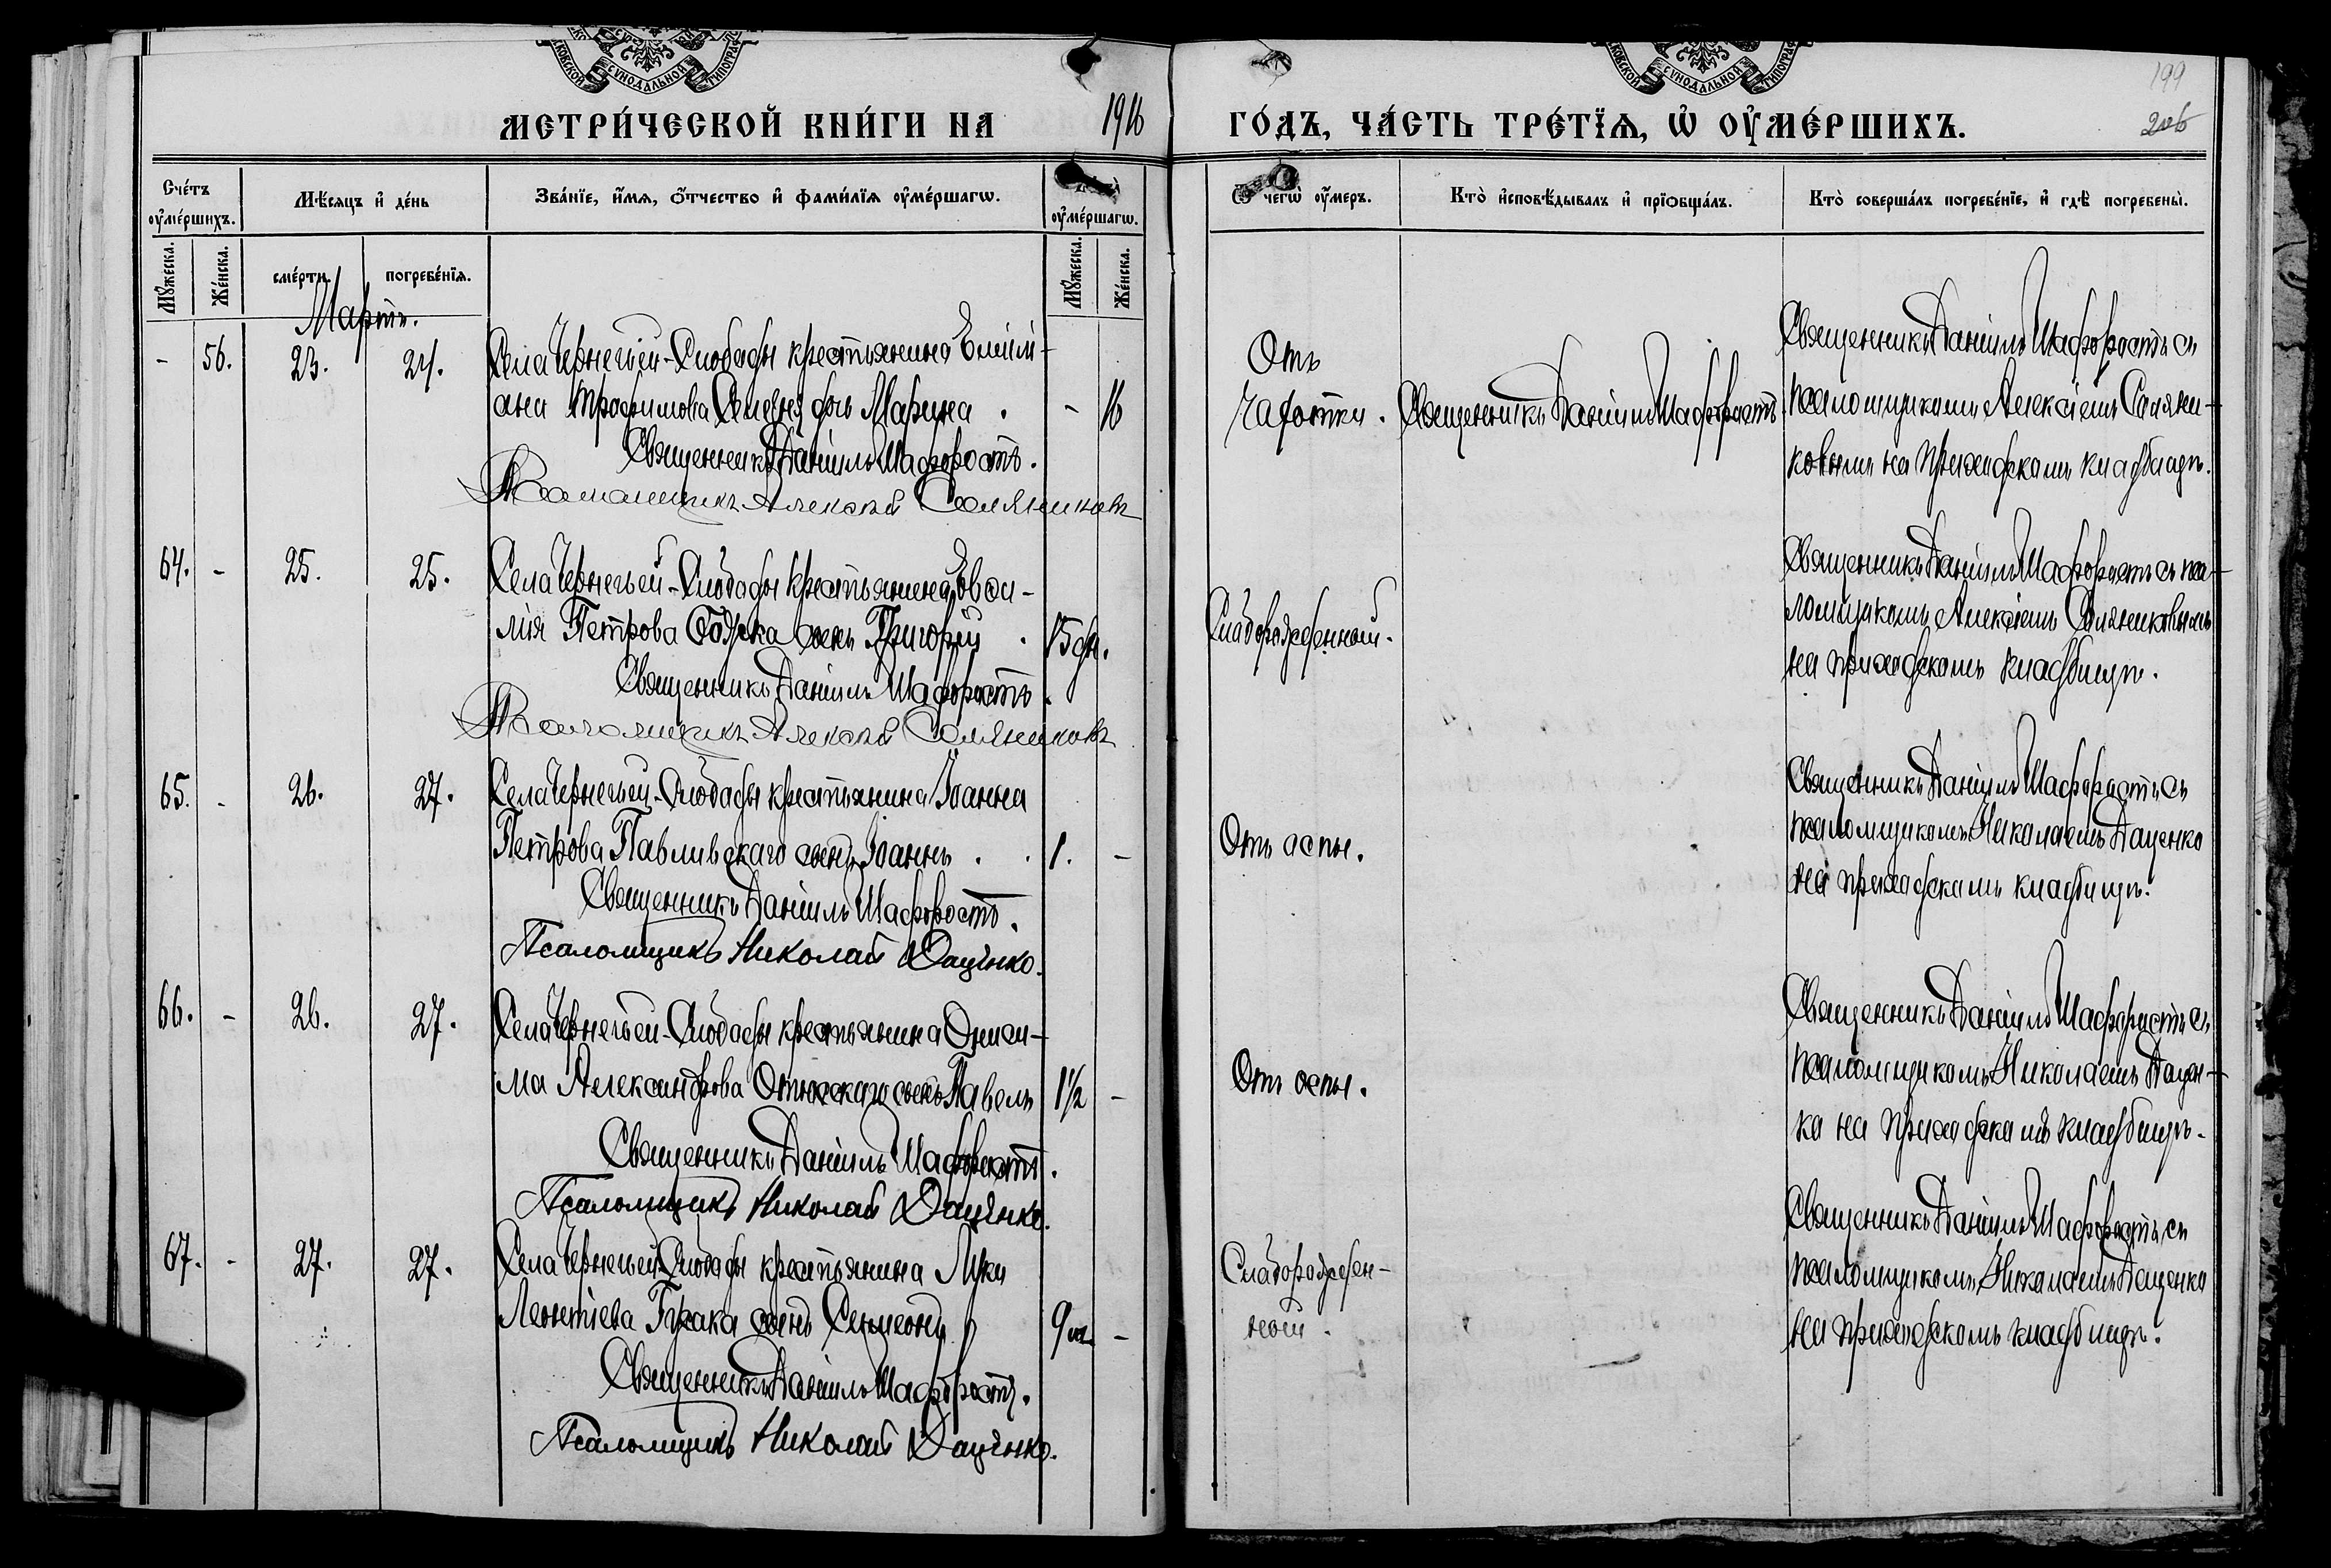 СѴНОДАЛЬНОЙ
СѴНОДАЛЬНОЙ
199
МЕТРИ́ЧЕСКОЙ КНИ́ГИ НА 1916 ГО́ДЪ, ЧА́СТЬ ТРЕ́ТЇѦ, Ѡ ОУ҆МЕ́РШИХЪ.
Сче́тъ оу҆ме́ршихъ.
Мѣ́сяцъ и҆ де́нь
Зва́нїе, и҆́мя, о҆́тчество и҆ фами́лїя оу҆ме́ршагѡ.
оу҆ме́ршагѡ.
Ѿ чегѡ̀ оу҆́меръ.
Кто̀ и҆сповѣ́дывалъ и҆ прїѡбща́лъ.
Кто̀ соверша́лъ погребе́нїе, и҆ гдѣ̀ погребены̀.
Му́жеска.
Же́нска.
сме́рти.
погребе́нїя.
Му́жеска.
Же́нска.
Мартъ.
- 56. 23. 24. Села Чернечьей-Слободы крестьянина Емили-
ана Трофимова дочь Марина . - 16
Священникъ Даніилъ Шафоростъ.
Псаломщикъ Алексѣй Соляниковъ
Отъ
чахотки.
Священникъ Даніилъ Шафоростъ.
Священникъ Даніилъ Шафоростъ съ
псаломщикомъ Алексіемъ Соляни-
ковымъ на приходскомъ кладбищѣ.
64. - 25. 25. Села Чернечьей-Слободы крестьянина Евѳи-
мія Петрова сынъ Григорій . 15 дн.
Священникъ Даніилъ Шафоростъ.
Псаломщикъ Алексѣй Соляниковъ
Слаборожденный.
Священникъ Даніилъ Шафоростъ съ пса-
ломщикомъ Алексіемъ Соляниковымъ
на приходскомъ кладбищѣ.
65. - 26. 27. Села Чернечьей-Слободы крестьянина Іоанна
Петрова Павливскаго сынъ Іоаннъ . . 1. -
Священникъ Даніилъ Шафоростъ.
Псаломщикъ Николай Даценко.
Отъ оспы.
Священникъ Даніилъ Шафоростъ съ
псаломщикомъ Николаемъ Даценко
на приходскомъ кладбищѣ.
66. - 26. 27. Села Чернечьей-Слободы крестьянина Ониси-
ма Александрова сынъ Павелъ 1½ -
Священникъ Даніилъ Шафоростъ.
Псаломщикъ Николай Даценко.
Отъ оспы.
Священникъ Даніилъ Шафоростъ съ
псаломщикомъ Николаемъ Дацен-
ко на приходскомъ кладбищѣ.
67. - 27. 27. Села Чернечьей Слободы крестьянина Луки
Леонтіева сынъ Симеонъ 9 м. -
Священникъ Даніилъ Шафоростъ.
Псаломщикъ Николай Даценко.
Слаборожден-
ный.
Священникъ Даніилъ Шафоростъ съ
псаломщикомъ Николаемъ Даценко
на приходскомъ кладбищѣ.